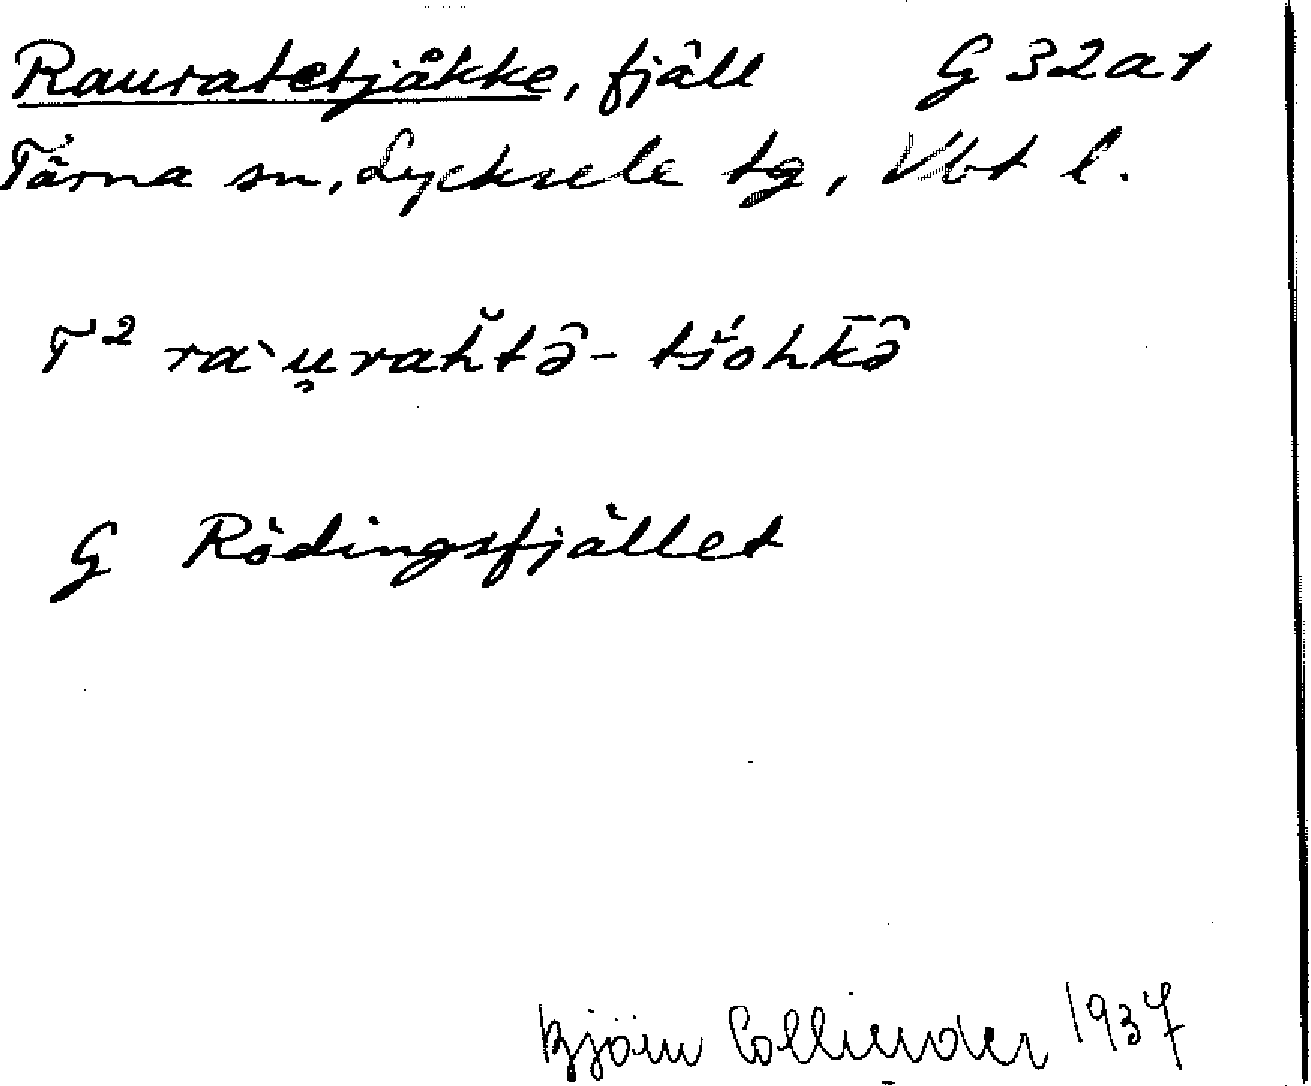 Rauratetjåkke, fjäll G 32a1
Tärna sn, Lycksele tg, Vbt l.
T² ra`u̯rah̆tə̂- tš́ohk̄ə̂
G Rödingsfjället
Björn Collinder 1937